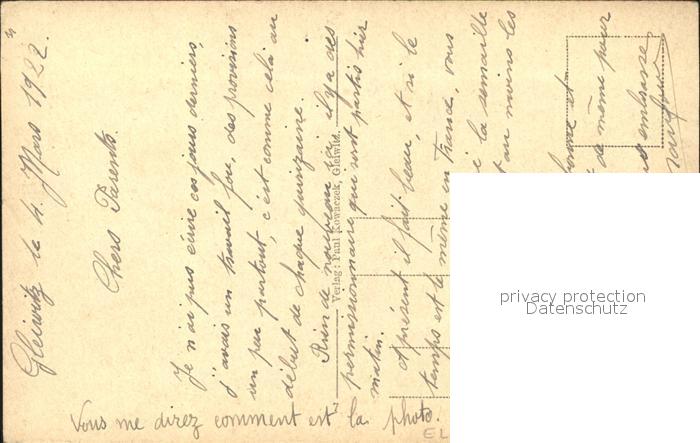 Gleiwitz le 4. Mars 1922.
Chers Parents.
Je n'ai pus écrire ces jours derniers,
j'avais un travail fou, des provisions
un peu partout, c'est comme cela au
début de chaque quinzaine.
Rien de nouveau ici, il y a des
permissionnaire qui sont partis hier
matin.
A présent il fait beau, et si le
temps est le même en France, vous
la semaille
au moins les
bonne et
de même pour
embrasse
Vous me direz comment est la photo.
Verlag: Paul Kowaczek, Gleiwitz.
privacy protection
Datenschutz
EL